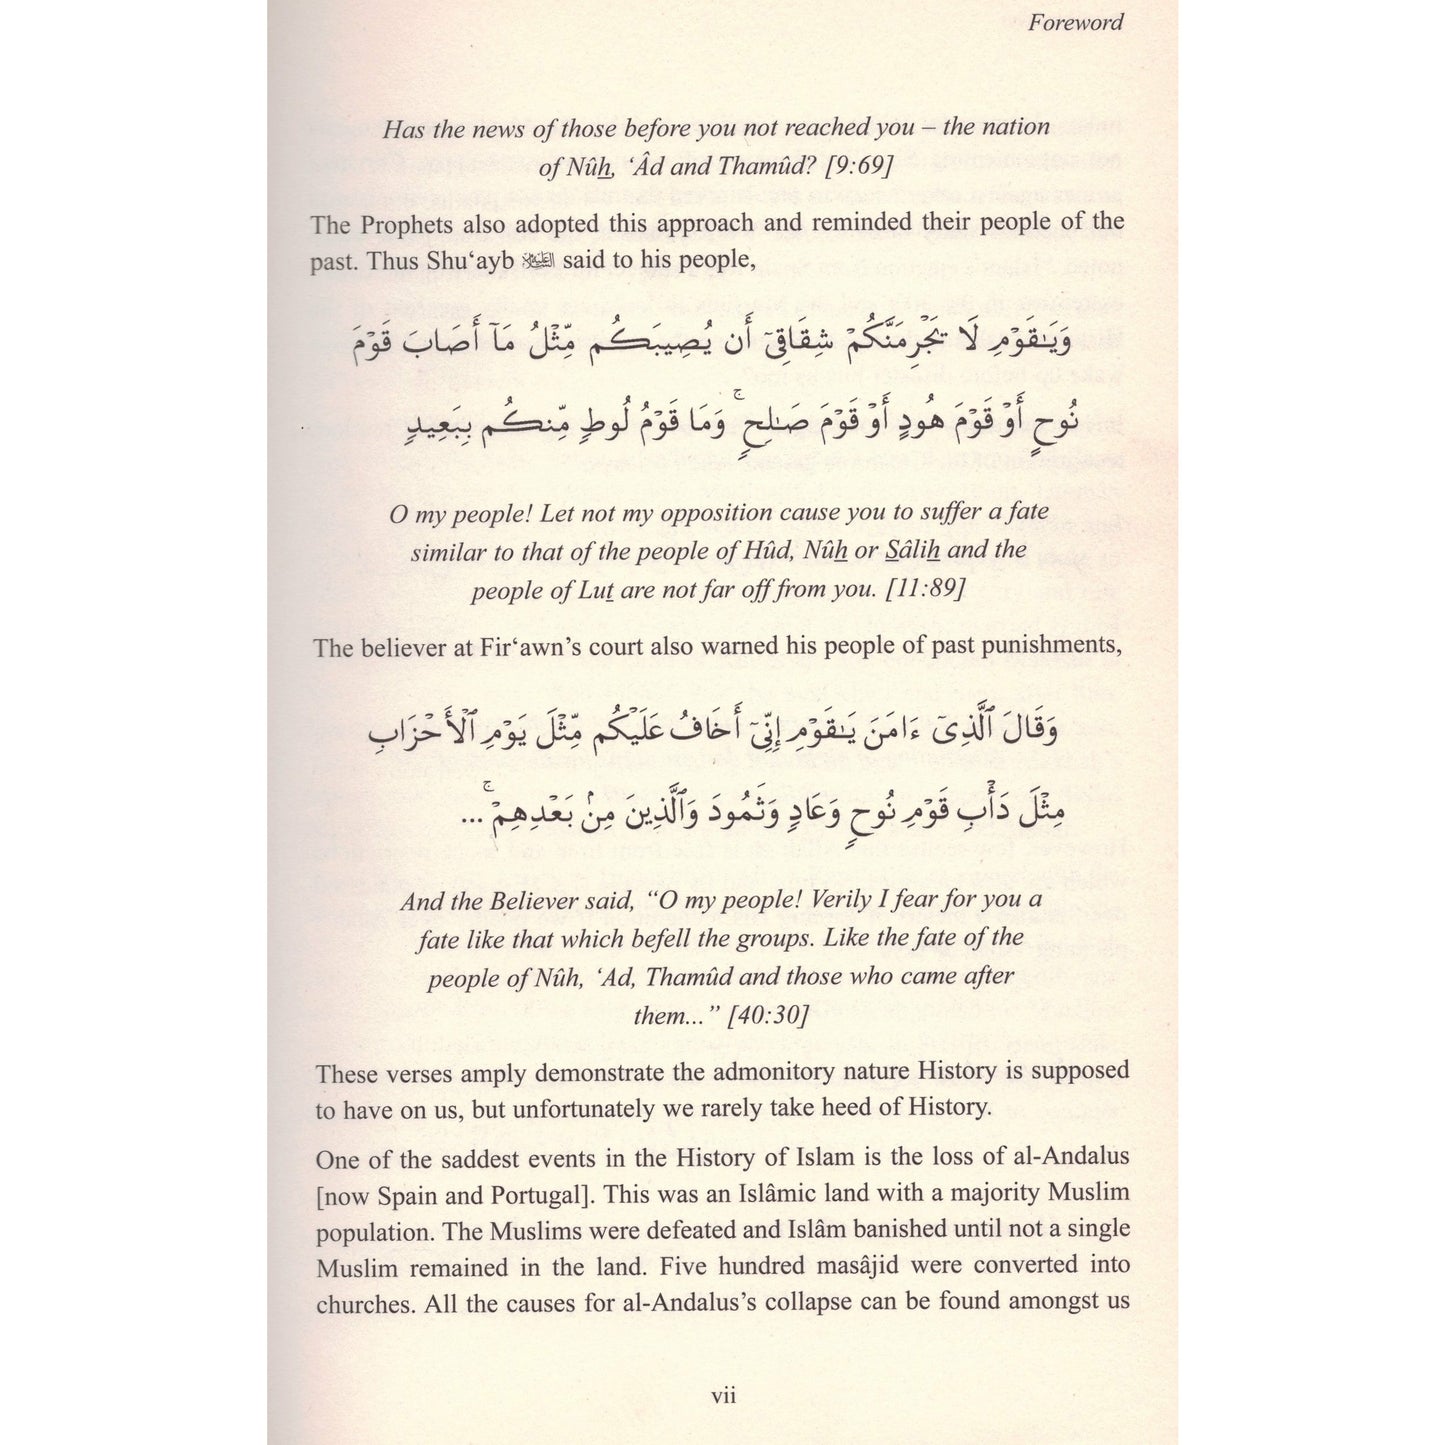 Foreword
Has the news of those before you not reached you – the nation
of Nûẖ, ‘Âd and Thamûd? [9:69]
The Prophets also adopted this approach and reminded their people of the
past. Thus Shu‘ayb عليه السلام said to his people,
وَيَـٰقَوْمِ لَا يَجْرِمَنَّكُمْ شِقَاقِىٓ أَن يُصِيبَكُم مِّثْلُ مَآ أَصَابَ قَوْمَ
نُوحٍ أَوْ قَوْمَ هُودٍ أَوْ قَوْمَ صَـٰلِحٍ ۚ وَمَا قَوْمُ لُوطٍ مِّنكُم بِبَعِيدٍ
O my people! Let not my opposition cause you to suffer a fate
similar to that of the people of Hûd, Nûẖ or S̱âliẖ and the
people of Luṯ are not far off from you. [11:89]
The believer at Fir‘awn’s court also warned his people of past punishments,
وَقَالَ ٱلَّذِىٓ ءَامَنَ يَـٰقَوْمِ إِنِّىٓ أَخَافُ عَلَيْكُم مِّثْلَ يَوْمِ ٱلْأَحْزَابِ
مِثْلَ دَأْبِ قَوْمِ نُوحٍ وَعَادٍ وَثَمُودَ وَٱلَّذِينَ مِنۢ بَعْدِهِمْ ۚ ...
And the Believer said, “O my people! Verily I fear for you a
fate like that which befell the groups. Like the fate of the
people of Nûh, ‘Ad, Thamûd and those who came after
them...” [40:30]
These verses amply demonstrate the admonitory nature History is supposed
to have on us, but unfortunately we rarely take heed of History.
One of the saddest events in the History of Islam is the loss of al-Andalus
[now Spain and Portugal]. This was an Islâmic land with a majority Muslim
population. The Muslims were defeated and Islâm banished until not a single
Muslim remained in the land. Five hundred masâjid were converted into
churches. All the causes for al-Andalus’s collapse can be found amongst us
vii